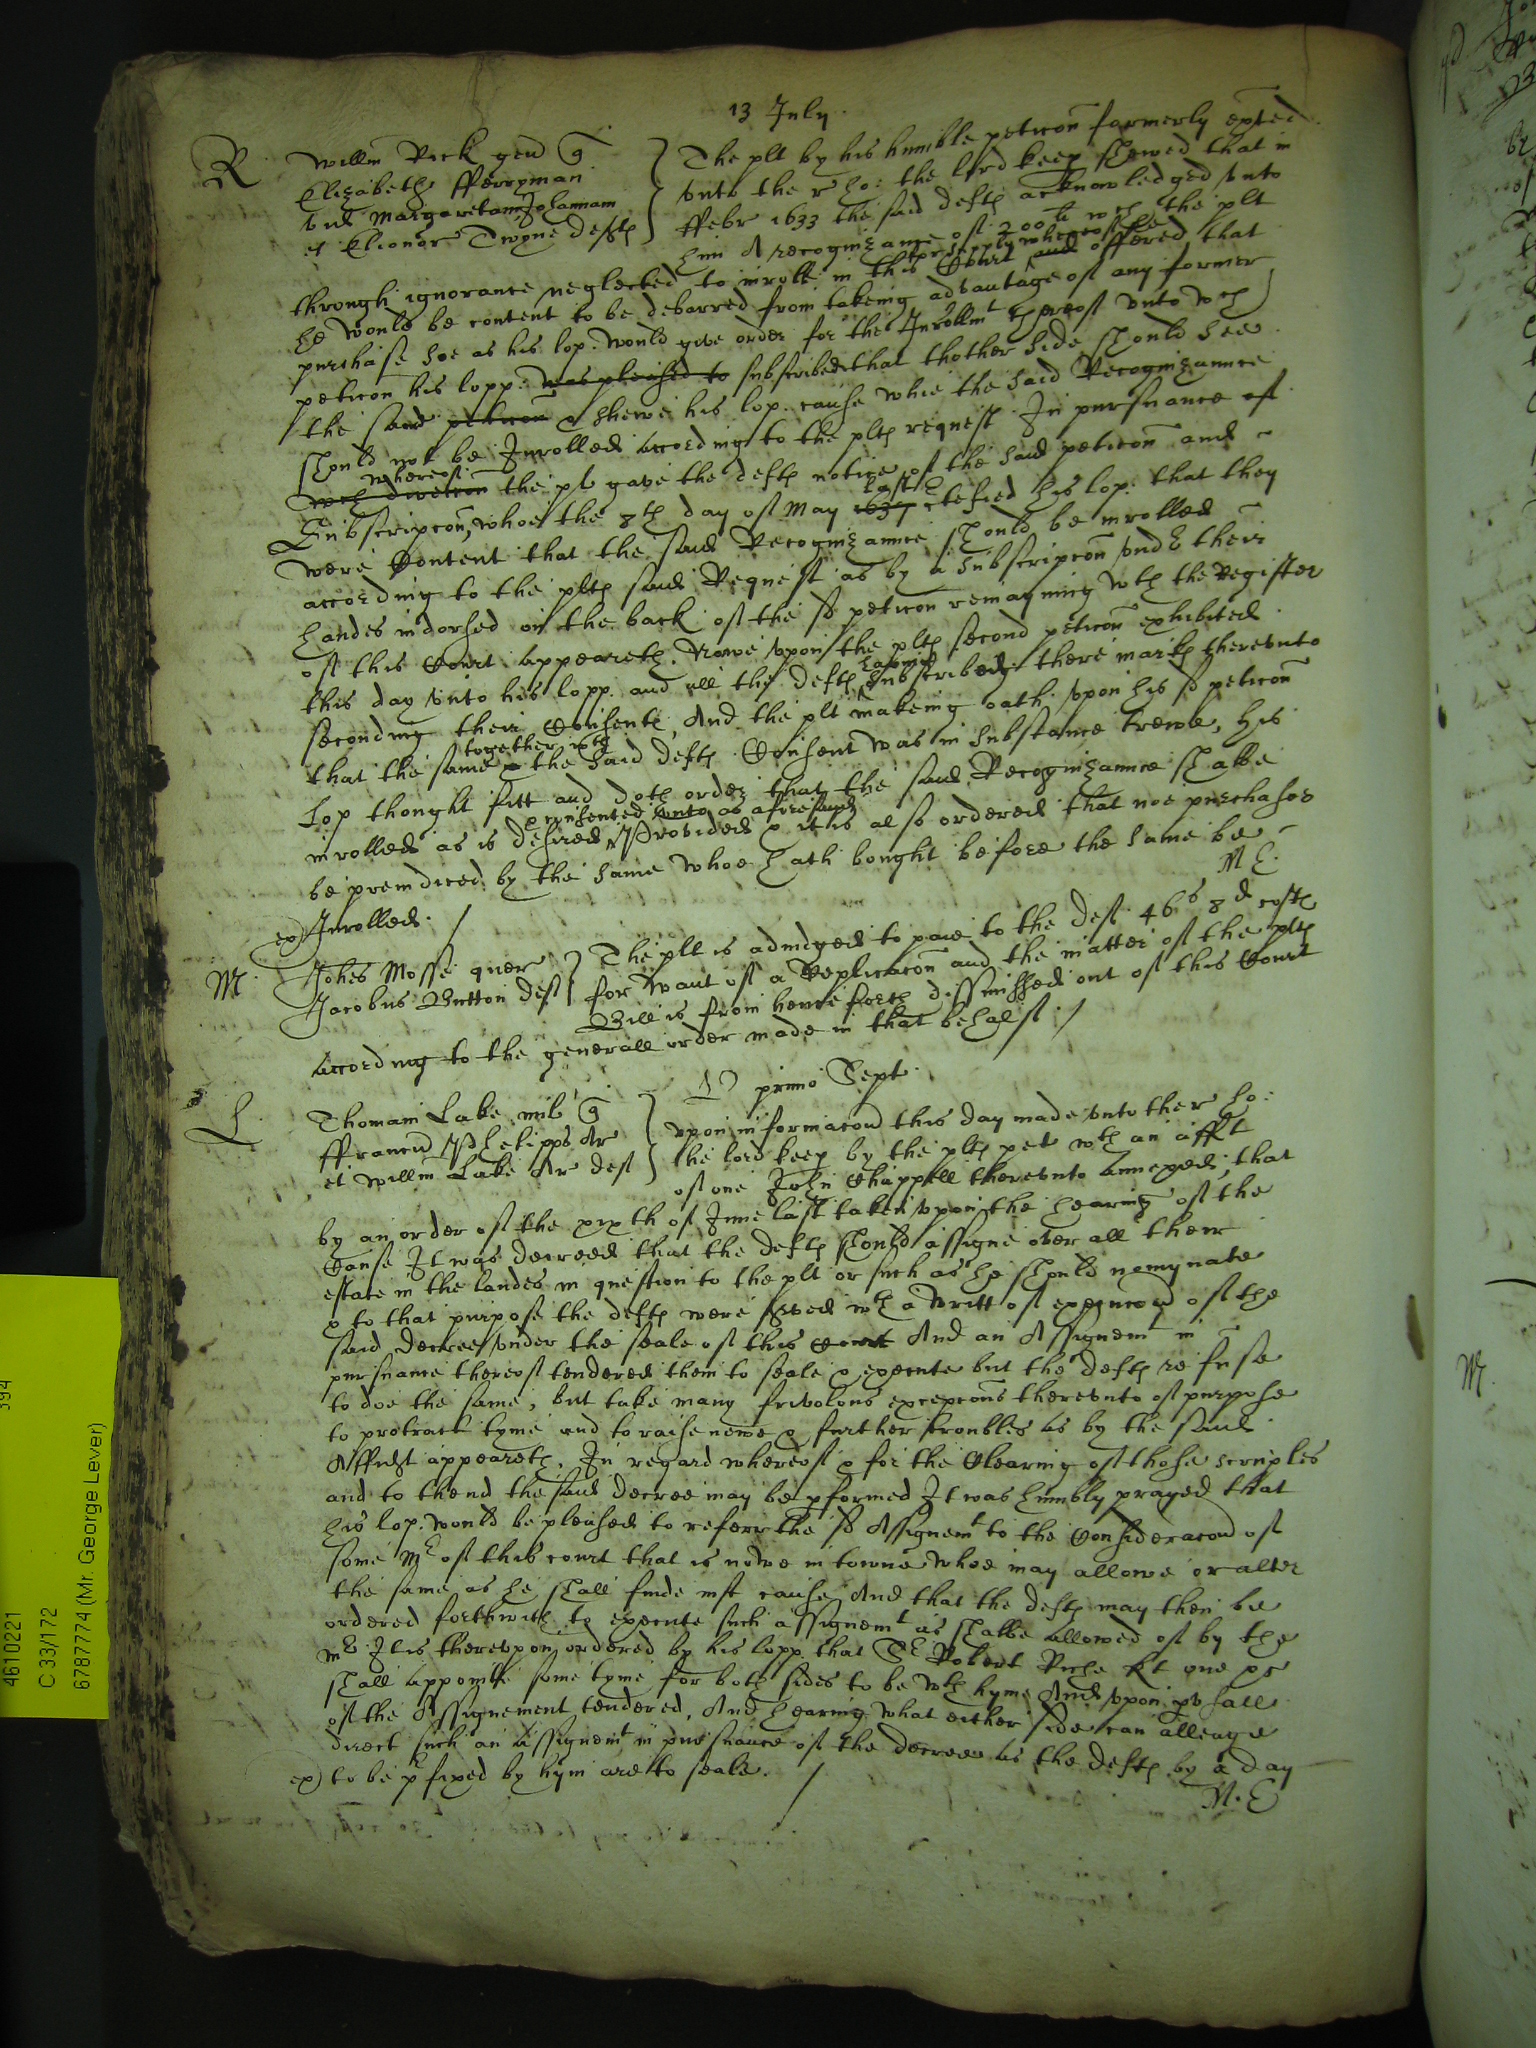 13 July
R Willm Rick gen q
Elizabeth fferryman
vid Margaretam Johannam
et Elionor Twyne defts
The plt by his humble peticon formerly exhted
vnto the r ho: the lord keep shewed that in
ffebr 1633 the said defts acknowledged vnto
him A recognizance of 200li wch the plt
through ignorance neglected to inrolle in this Court and offered that
he would be content to be debarred from takeing advantage of any former
purchase soe as his lop. would give order for the Inrollmt thereof vnto wch
peticon his lopp: was pleased to subscribed that thother side should see
the said peticon & shewe his lop. cause whie the said Recognizaunce
should not be Inrolled according to the plts request In pursuance of
whereof
wch direccon the plt gave the defts notice of the said peticon and
last
Subscripcon, whoe the 8th day of May 1637 certefied his lop. that they
were Content that the said Recognizaunce should be inrolled
according to the plts said Request as by a subscripcon vnder their
handes indorsed on the back of the sd peticon remayning wth the Register
of this Court appeareth. Nowe vpon the plts second peticon exhibited
this day vnto his lopp. and all the defts haveing subscribed there marks therevnto
seconding their Consents, And the plt makeing oath vpon his sd peticon
together wth
that the same & the said defts Consent was in substance trewe, his
Lop thought fitt and doth order that the said Recognizaunce shalbe
& consented vnto as aforesaid
inrolled as is desired Provided & it is also ordered that noe purchasor
be preiudiced by the same whoe hath bought before the same be
M E.
ex) Inrolled. /
M. Johes Mosse quer
Jacobus Button deft
The plt is adiudged to paie to the deft 46s 8d costs
for want of a Replicacon and the matter of the plts
Bill is from henceforth dissmissed out of this Court
according to the generall order made in that behalf. /
primo Sept.
L. Thomam Lake mil q
ffrancu Phelipps Ar
et Willm Lake Ar deft
vpon informacon this day made vnto the r ho:
the lord keep by the plts pet wth an afft
of one John Chappell therevnto annexed, that
by an order of the xixth of June last taken vpon the hearing of the
Cause It was decreed that the defts should assigne over all their
estate in the landes in question to the plt or such as he should nomynate
& to that purpose the defts were served wth a writt of execucon of the
said decree vnder the seale of this Court And an Assignemt in
pursuance thereof tendered them to seale & execute but the defts refuse
to doe the same, but take many frivolous excepcons therevnto of purpose
to protract tyme and to raise newe & further troubles as by the said
Affidt appeareth. In regard whereof & for the Clearing of those scruples
and to thend the said decree may be pformed It was humbly prayed that
his lop. would be pleased to referr the sd Assignemt to the Consideracon of
some Mr of this court that is nowe in towne whoe may allowe or alter
the same as he shall finde iust cause And that the defts may then be
ordered forthwith to execute such assignemt as shalbe allowed of by the
Mr It is therevpon ordered by his lopp. that Sr Robert Riche Kt one &c
shall appointe some tyme for both sides to be wth hyme And vpon pvsall
of the Assignement tendered, And hearing what either side can alleage
direct such an assignemt in pursuance of the decree as the defts by a day
ex) to be pfixed by hym are to seale. /
M. E
4610221
C 33/172
6787774 (Mr. George Lever)
394
M.